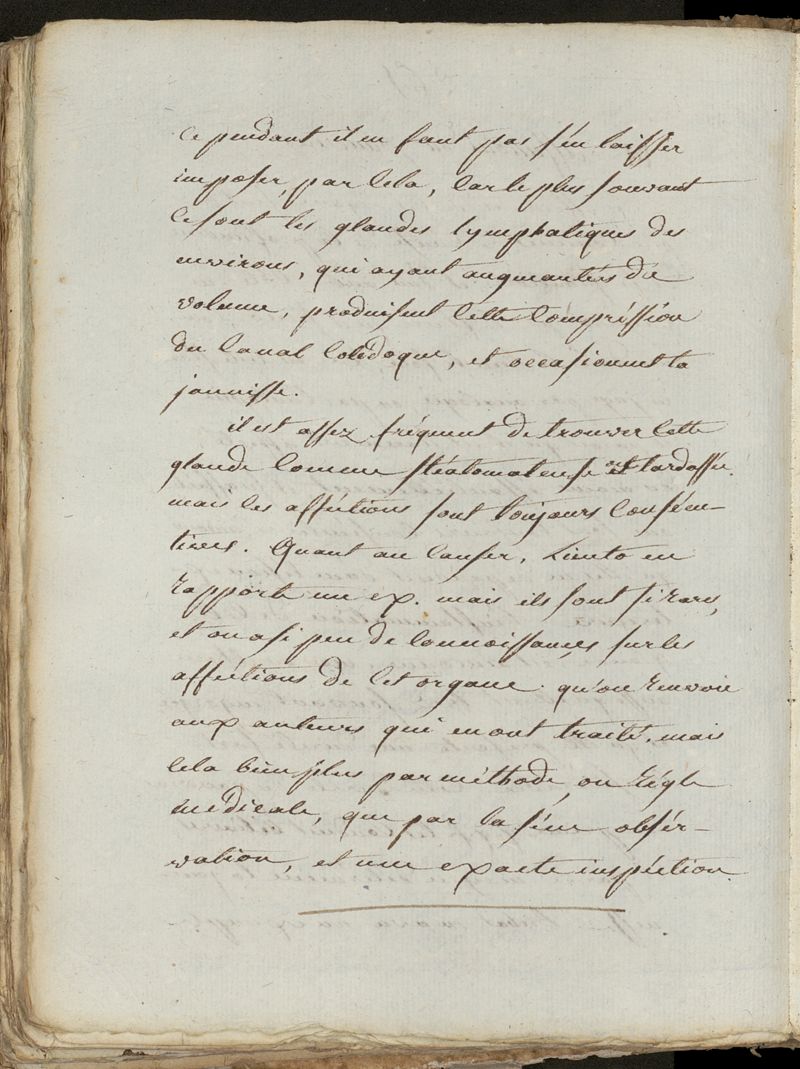 cependant il en faut pas s'en laisser
imposer, par cela, car le plus souvant
ce sont les glandes lymphatiques des
environs, qui ayant augmantés du
volume, produisent cette compréssion
du canal colédoque, et occasionnent la
jaunisse.
il est assez fréquent de trouver cette
glande comme stéatomateuse et lardassée.
mais les afféctions sont toujours consécu-
tives. Quant au canser, Lieuto en
rapporte un ex. mais ils sont si rares,
et on a si peu de connoissances, sur les
afféctions de cet organe. qu'on renvoie
aux auteurs qui en ont traité. mais
cela bien plus par méthode, ou régle
medicale, que par la séure obsér-
vation, et une exacte inspéction.